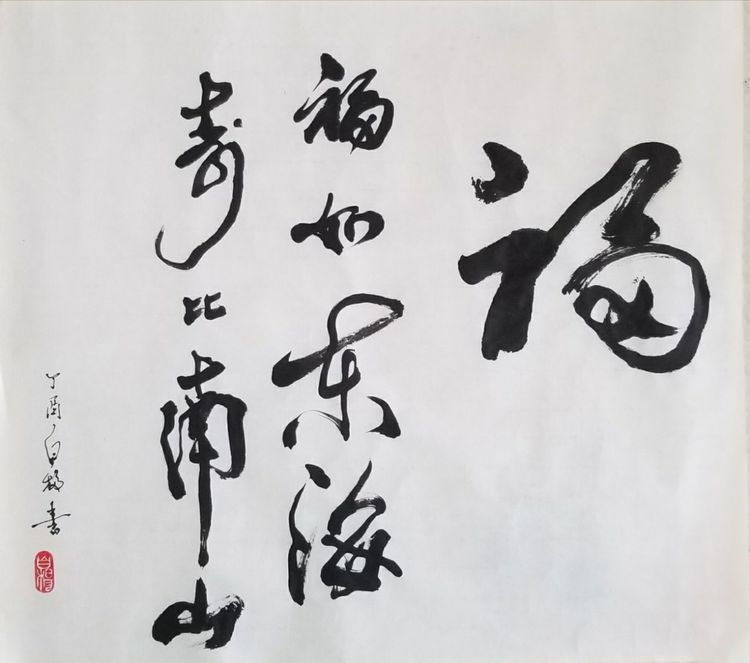 福
福如东海
寿比南山
丁酉白梅书